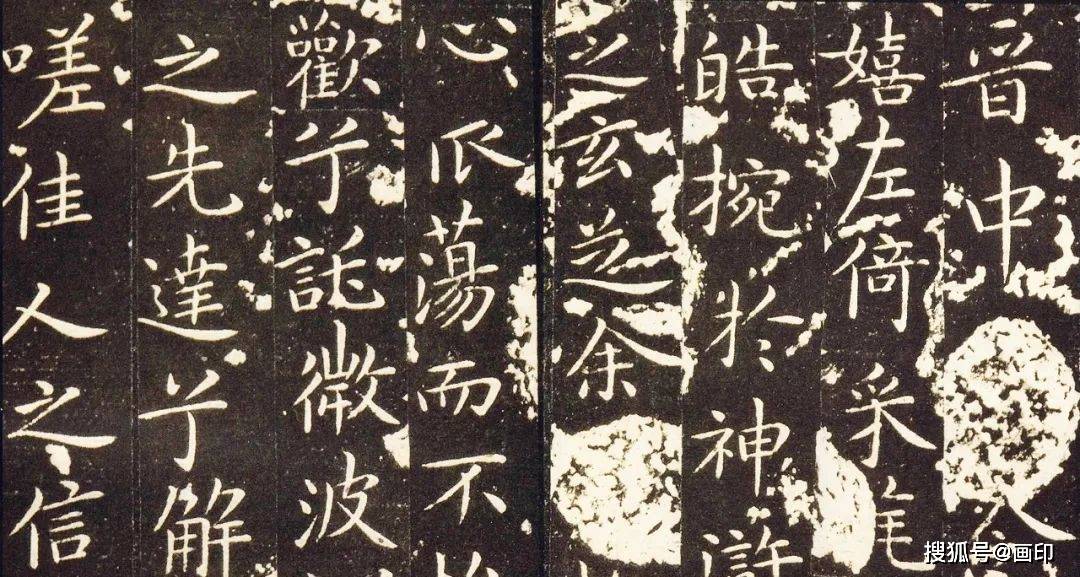 中
嬉左倚采旄
皓捥於神滸
之玄芝余
心蕩而不
歡兮託微波
之先達兮解
嗟佳人之信
搜狐号@画印